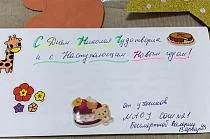 С Днём Николая Чудотворца
и с Наступающим Новым годом!
от учеников
МАОУ СОШ №1
Бессмертной Валерии